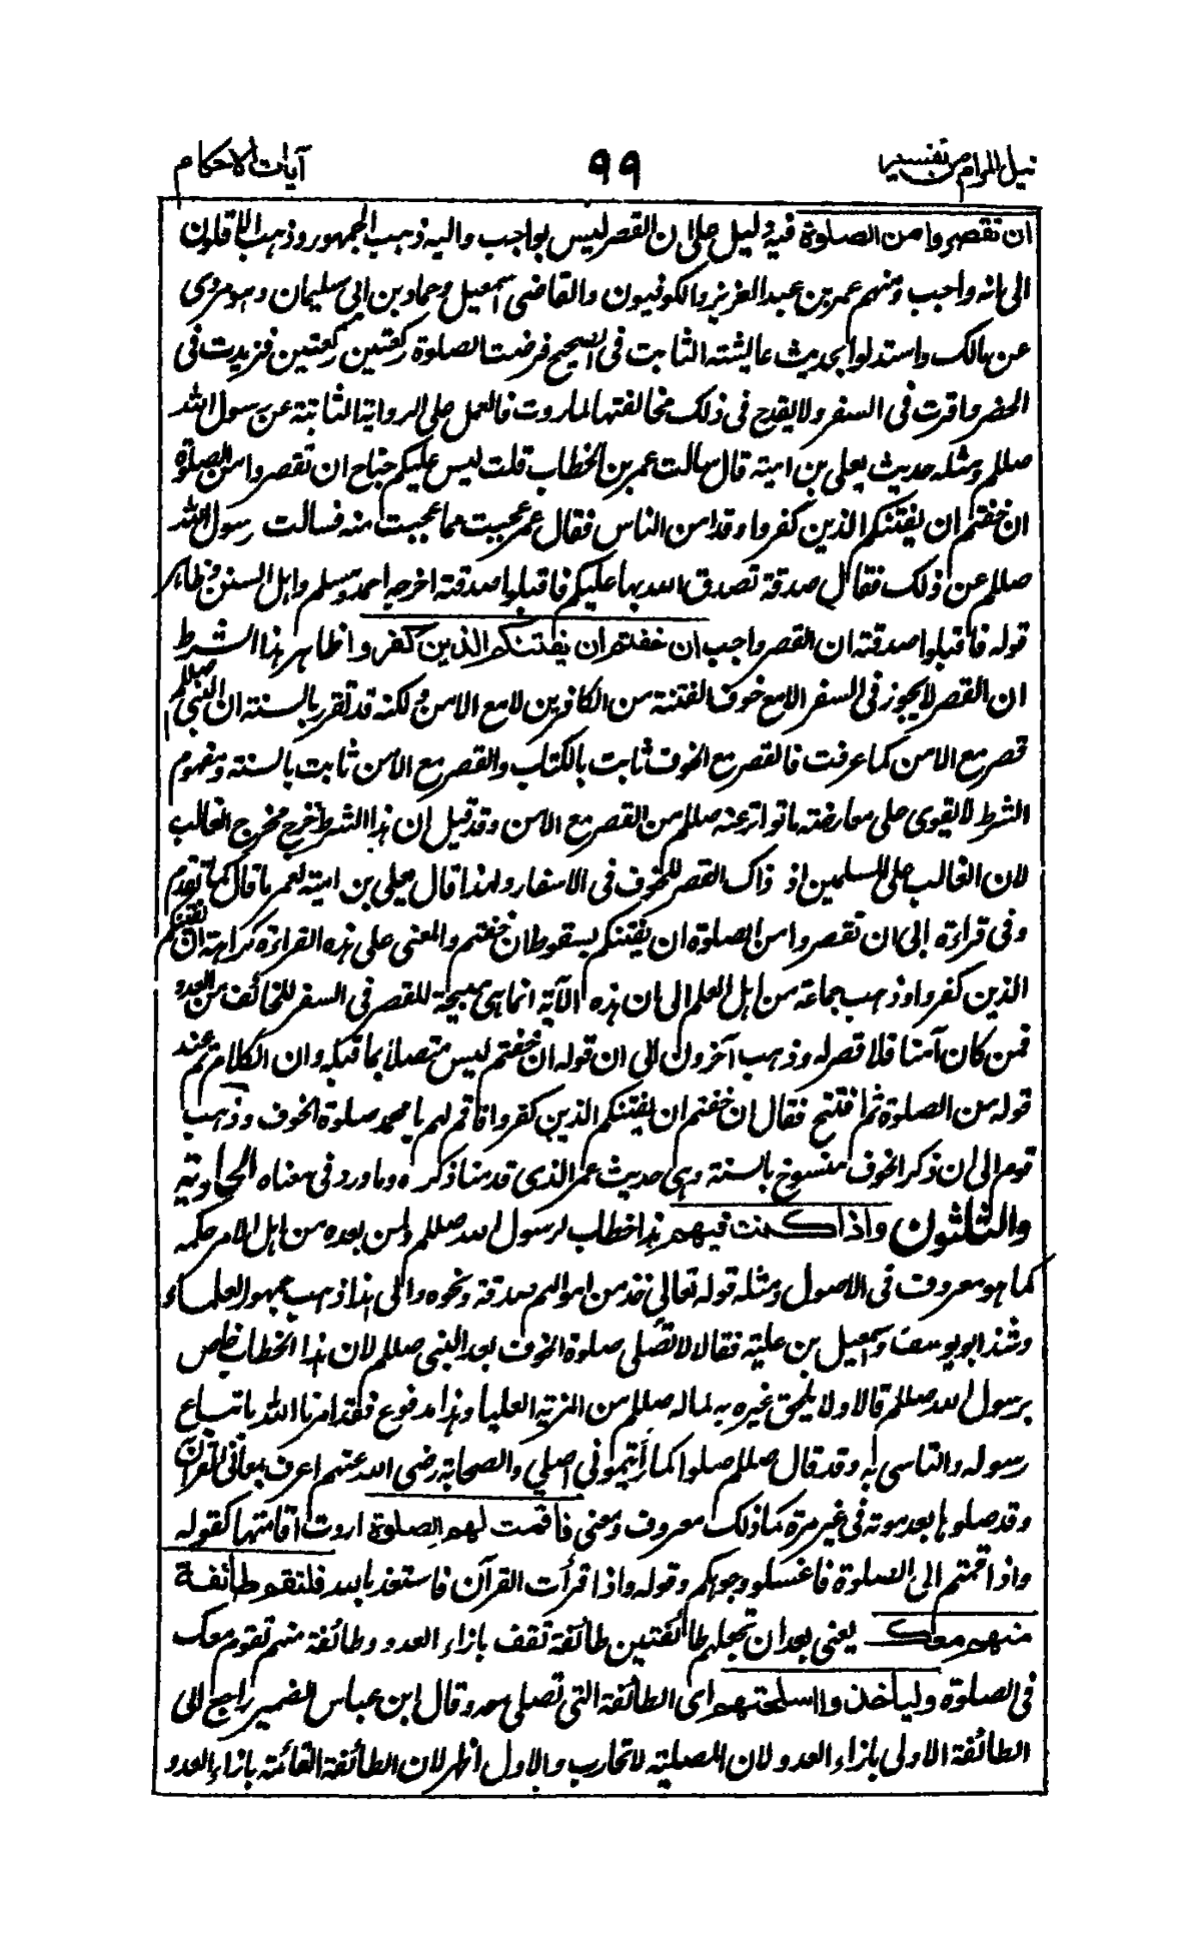 نيل المرام من تفسير ٩٩ آيات الاحكام
ان تقصروا من الصلوة فيه دليل على ان القصر ليس بواجب واليه ذهب الجمهور وذهب الاقلون
الى انه واجب ومنهم عمر بن عبد العزيز والكوفيون والقاضى اسمعيل وحماد بن ابى سليمان وهو مروى
عن مالك واستدلوا بحديث عايشة الثابت فى الصحيح فرضت الصلوة ركعتين ركعتين فزيدت فى
الحضر واقرت فى السفر ولا يقدح فى ذلك مخالفتها لما روت فالعمل على الرواية الثابتة عن رسول الله
صللم ومثله حديث يعلى بن امية قال سالت عمر بن الخطاب قلت ليس عليكم جناح ان تقصروا من الصلوة
ان خفتم ان يفتنكم الذين كفروا وقد امن الناس فقال عمر عجبت مما عجبت منه فسالت رسول الله
صللم عن ذلك فقال صدقة تصدق الله بها عليكم فاقبلوا صدقته اخرجه احمد ومسلم واهل السنن وظاهر
قوله فاقبلوا صدقته ان القصر واجب ان خفتم ان يفتنكم الذين كفروا ظاهر هذا الشرط
ان القصر لا يجوز فى السفر الا مع خوف الفتنة من الكافرين لا مع الامن ولكنه قد تقرر بالسنة ان النبى صللم
قصر مع الامن كما عرفت فالقصر مع الخوف ثابت بالكتاب والقصر مع الامن ثابت بالسنة ومفهوم
الشرط لا يقوى على معارضته ما تواتر عنه صللم من القصر مع الامن وقد قيل ان هذا الشرط خرج مخرج الغالب
لان الغالب على المسلمين اذ ذاك القصر للخوف فى الاسفار ولهذا قال يعلى بن امية لعمر ما قال كما تقدم
وفى قراءة ابى ان تقصروا من الصلوة ان يفتنكم بسقوط ان خفتم والمعنى على هذه القراءة كراهة ان يفتنكم
الذين كفروا وذهب جماعة من اهل العلم الى ان هذه الآية انما هى مبيحة للقصر فى السفر للخائف من العدو
فمن كان آمنا فلا قصر له وذهب آخرون الى ان قوله ان خفتم ليس متصلا بما قبله وان الكلام تم عند
قوله من الصلوة ثم افتتح فقال ان خفتم ان يفتنكم الذين كفروا فاقم لهم يا محمد صلوة الخوف وذهب
قوم الى ان ذكر الخوف منسوخ بالسنة وهى حديث عمر الذى قدمنا ذكره وما ورد فى معناه الحادية
والثلثون واذا كنت فيهم هذا خطاب لرسول الله صللم ولمن بعده من اهل الامر حكمه
كما هو معروف فى الاصول ومثله قوله تعالى خذ من اموالهم صدقة ونحوه والى هذا ذهب جمهور العلماء
وشذ ابو يوسف واسمعيل بن علية فقالا لا تصلى صلوة الخوف بعد النبى صللم لان هذا الخطاب خاص
برسول الله صللم قالا ولا يلحق غيره به لما له صللم من المزية العليا وهذا مدفوع فقد امرنا الله باتباع
رسوله والتاسى به وقد قال صللم صلوا كما رأيتمونى اصلي والصحابة رضى الله عنهم اعرف بمعانى القرآن
وقد صلوها بعد موته فى غير مرة كما ذلك معروف ومعنى فاقمت لهم الصلوة اردت اقامتها كقوله
واذا قمتم الى الصلوة فاغسلو وجوهكم وقوله واذا قرأت القرآن فاستعذ بالله فلتقم طائفة
منهم معك يعنى بعد ان تجعلهم طائفتين طائفة تقف بازاء العدو وطائفة منهم تقوم معك
فى الصلوة ولياخذوا اسلحتهم اى الطائفة التى تصلى معه وقال ابن عباس الضمير راجع الى
الطائفة الاولى بازاء العدو لان المصلية لا تحارب والاول اظهر لان الطائفة القائمة بازاء العدو